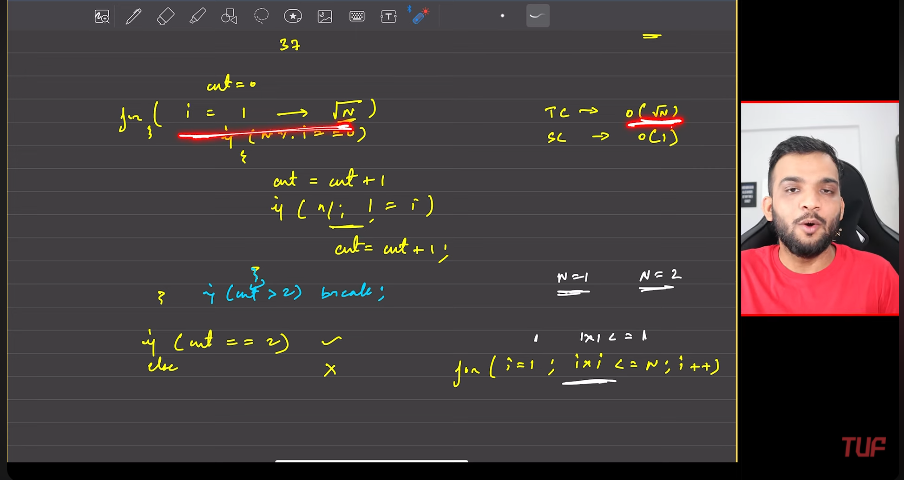 37
cnt = 0
for ( i = 1 → √N )
{
if ( N % i == 0 )
{
cnt = cnt + 1
if ( n/i != i )
cnt = cnt + 1;
}
if (cnt > 2) break;
}
if (cnt == 2) ✓
else ×
TC → O(√N)
SC → O(1)
N=1 N=2
1 1×1 <= 1
for ( i=1 ; i×i <= N ; i++)
T
TUF